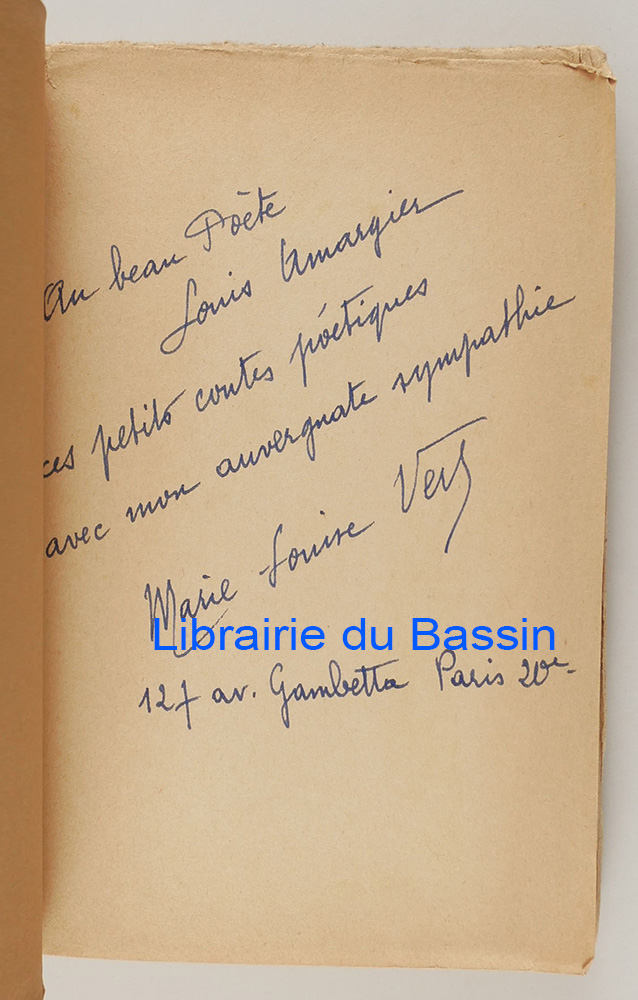 Au beau Poète
Louis Amargier
ces petits contes poétiques
avec mon auvergnate sympathie
Marie Louise Vert
Librairie du Bassin
127 av. Gambetta Paris 20e